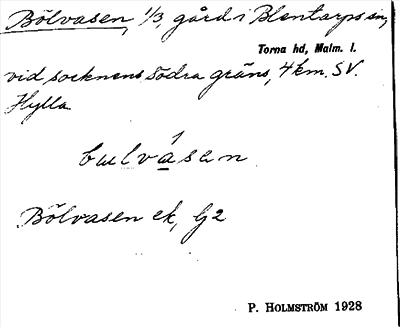 Bölvasen, 1/3, gård i Blentarps sn,
Torna hd, Malm. l.
vid socknens södra gräns, 4 km. SV.
Hylla
bulvasen
Bölvasen ek, G2
P. HOLMSTRÖM 1928